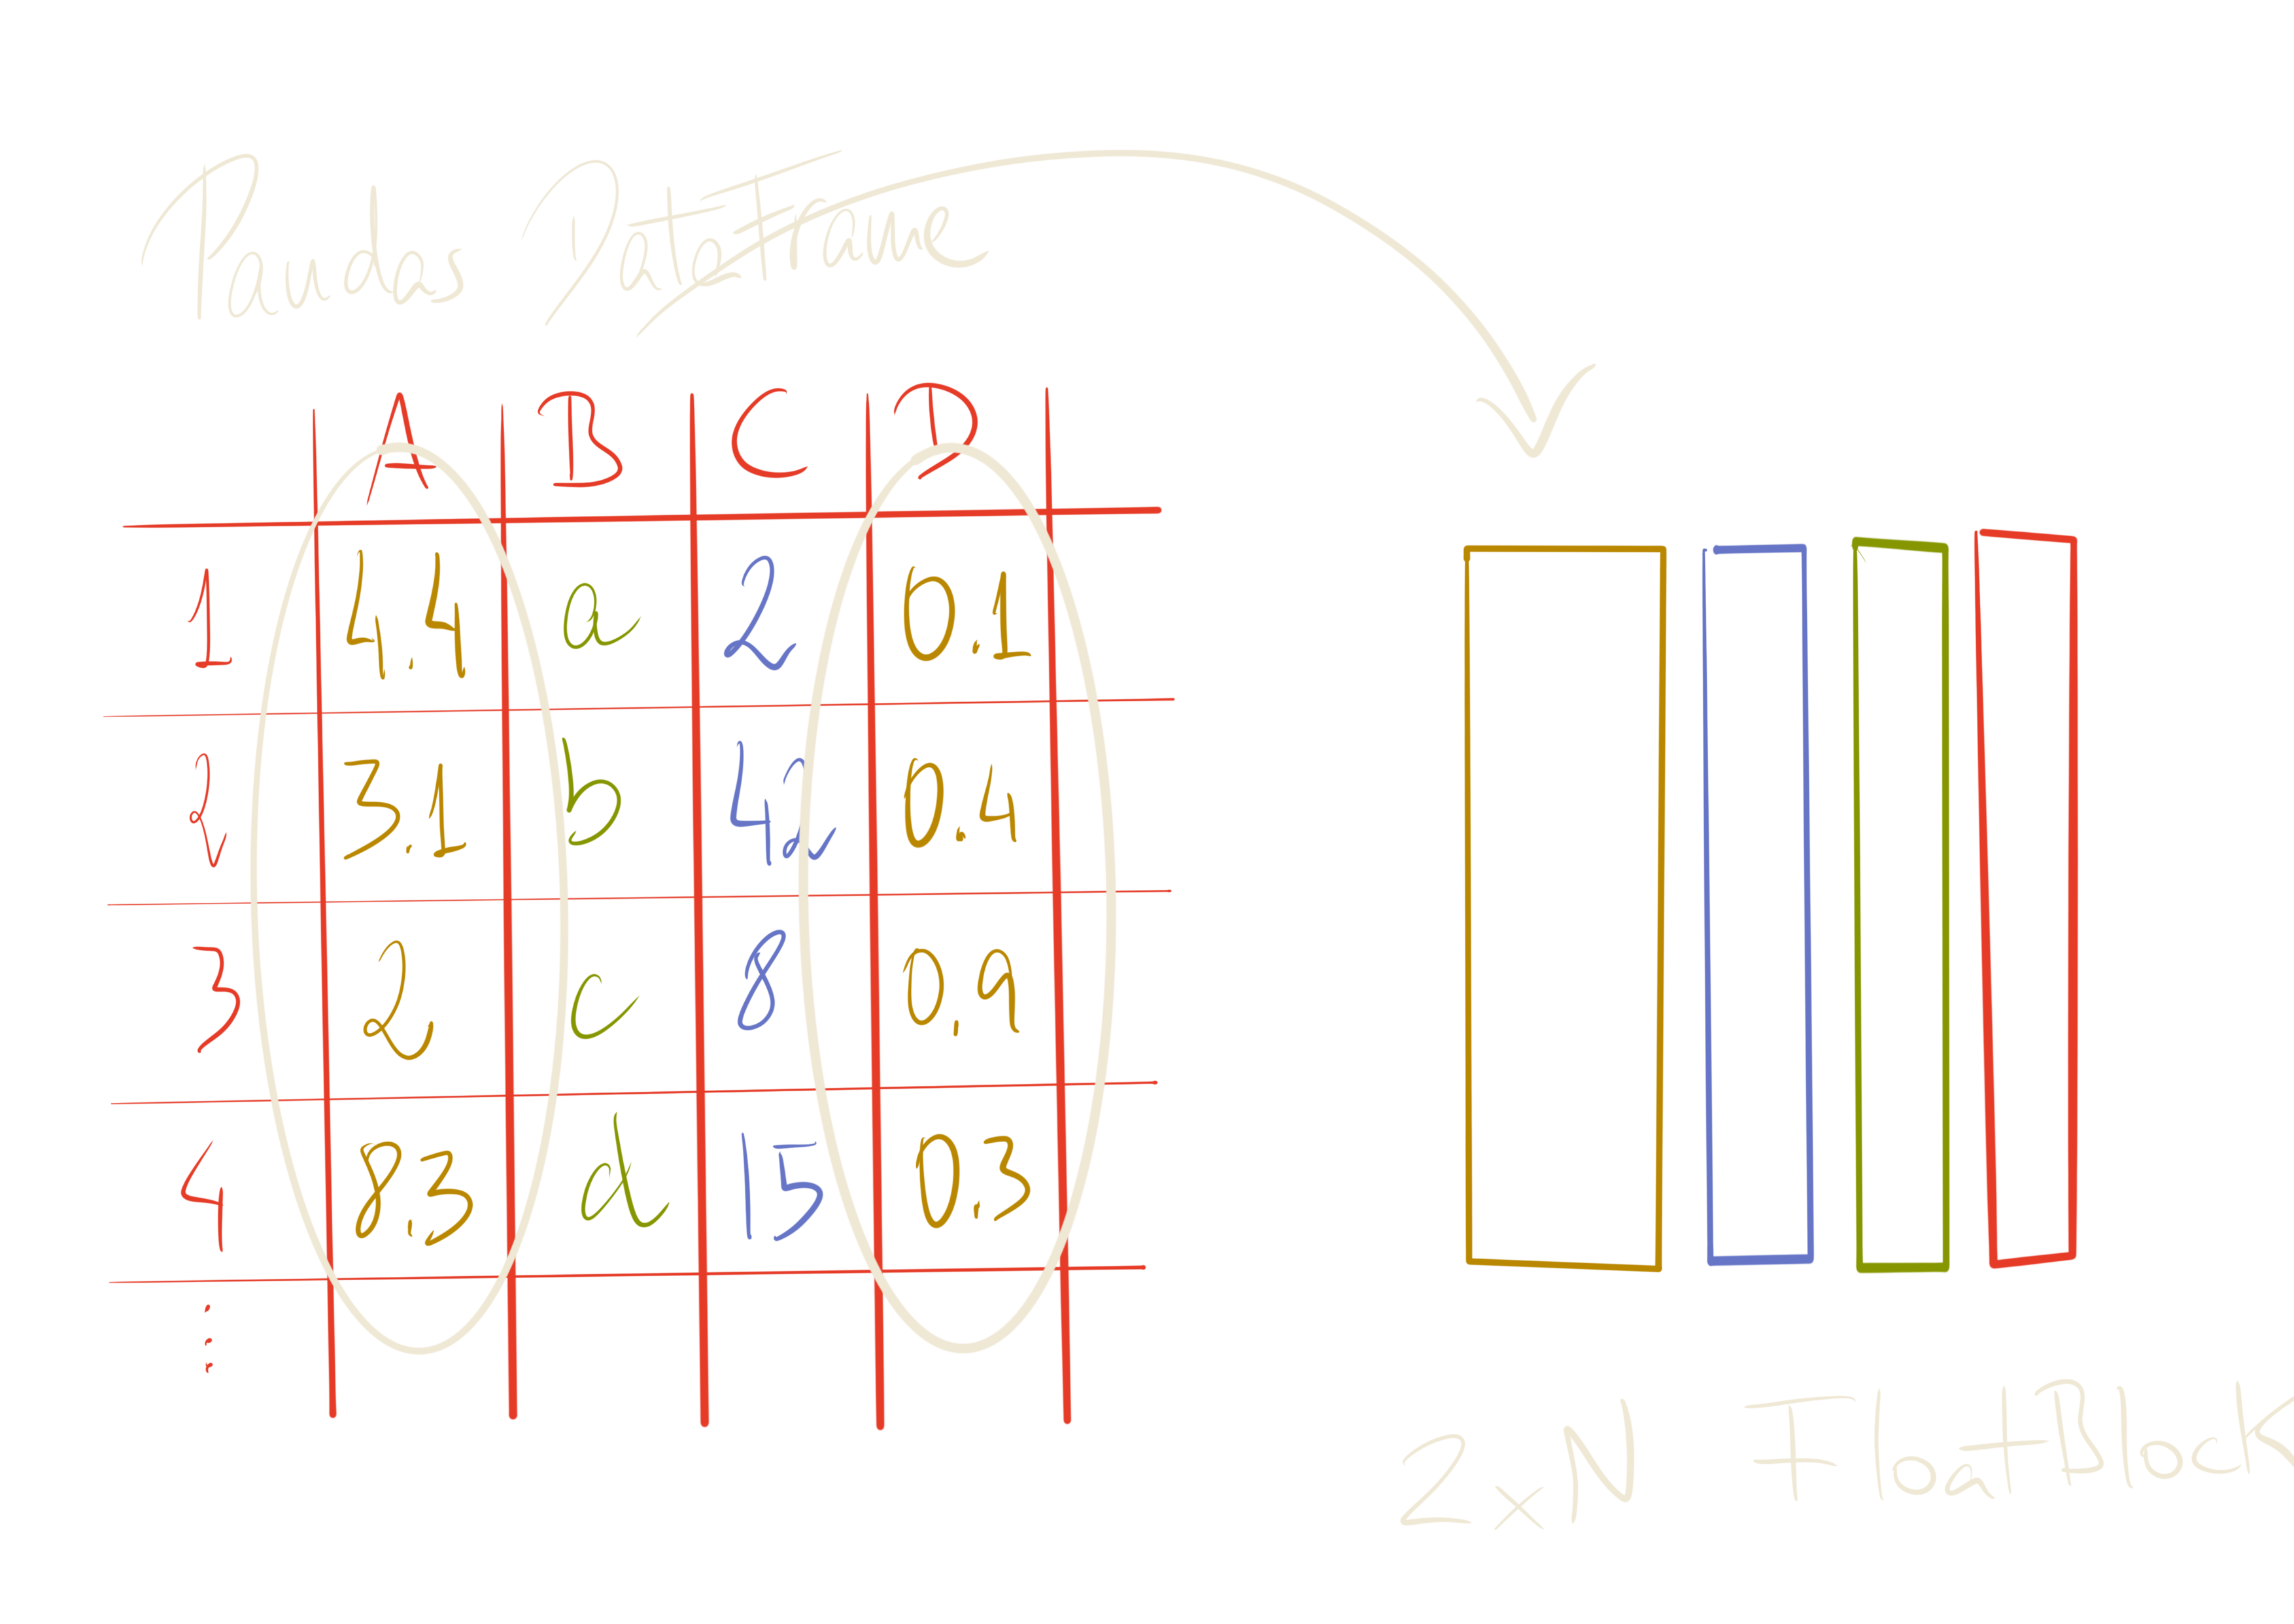 Pandas DataFrame
A B C D
1 4.4 a 2 0.1
2 3.1 b 42 0.4
3 2. c 8 0.9
4 8.3 d 15 0.3
2xN FloatBlock